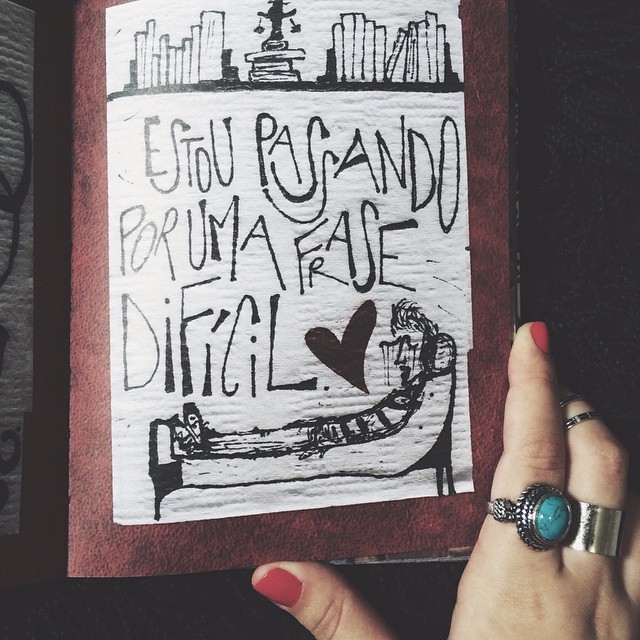 ESTOU PASSANDO
POR UMA FRASE
DIFÍCIL.